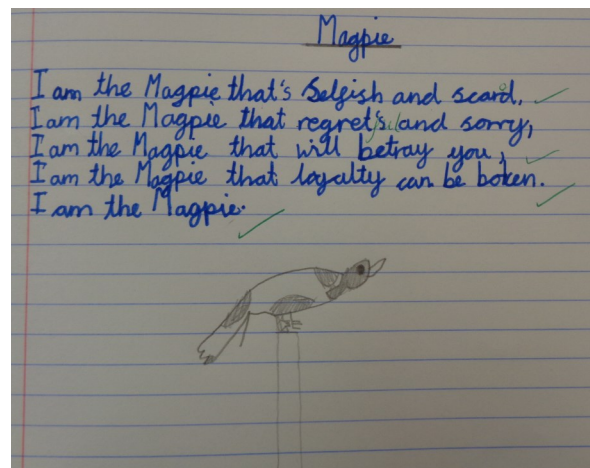 Magpie
I am the Magpie that's Selfish and scard,
I am the Magpie that regret's and sorry,
I am the Magpie that will betray you,
I am the Magpie that loyalty can be boken.
I am the Magpie.